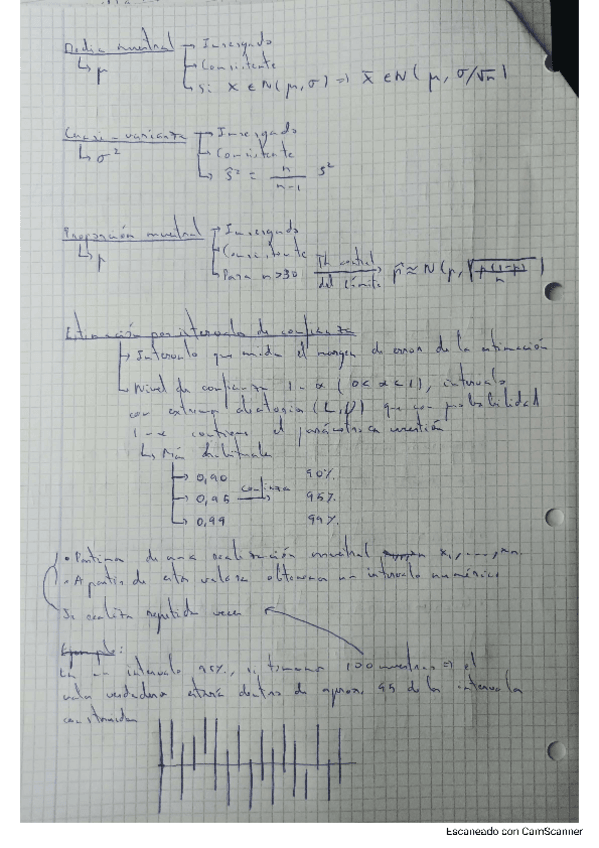 Media muestral → Insesgado
↳ μ → Consistente
↳ Si X ∈ N(μ, σ) ⇒ X̄ ∈ N(μ, σ/√n)
Cuasi-varianza → Insesgado
↳ σ² → Consistente
↳ ŝ² = n/(n-1) s²
Proporción muestral → Insesgado
↳ p → Consistente
↳ Para n>30 Th central del límite → p̂ ≈ N(p, √(p(1-p)/n))
Estimación por intervalos de confianza
→ Intervalo que mida el margen de error de la estimación
↳ Nivel de confianza 1-α (0<α<1), intervalo
con extremos aleatorios (L,U) que con probabilidad
1-α contiene el parámetro en cuestión
↳ Más habituales
→ 0,90 90%
→ 0,95 confianza → 95%
→ 0,99 99%
• Partimos de una realización muestral x₁,...,xₙ
• A partir de estos valores obtenemos un intervalo numérico
Se realiza repetidas veces
Ejemplo:
En un intervalo 95%, si tomamos 100 muestras ⇒ el
valor verdadero estará dentro de aprox. 95 de los intervalos
construidos
Escaneado con CamScanner